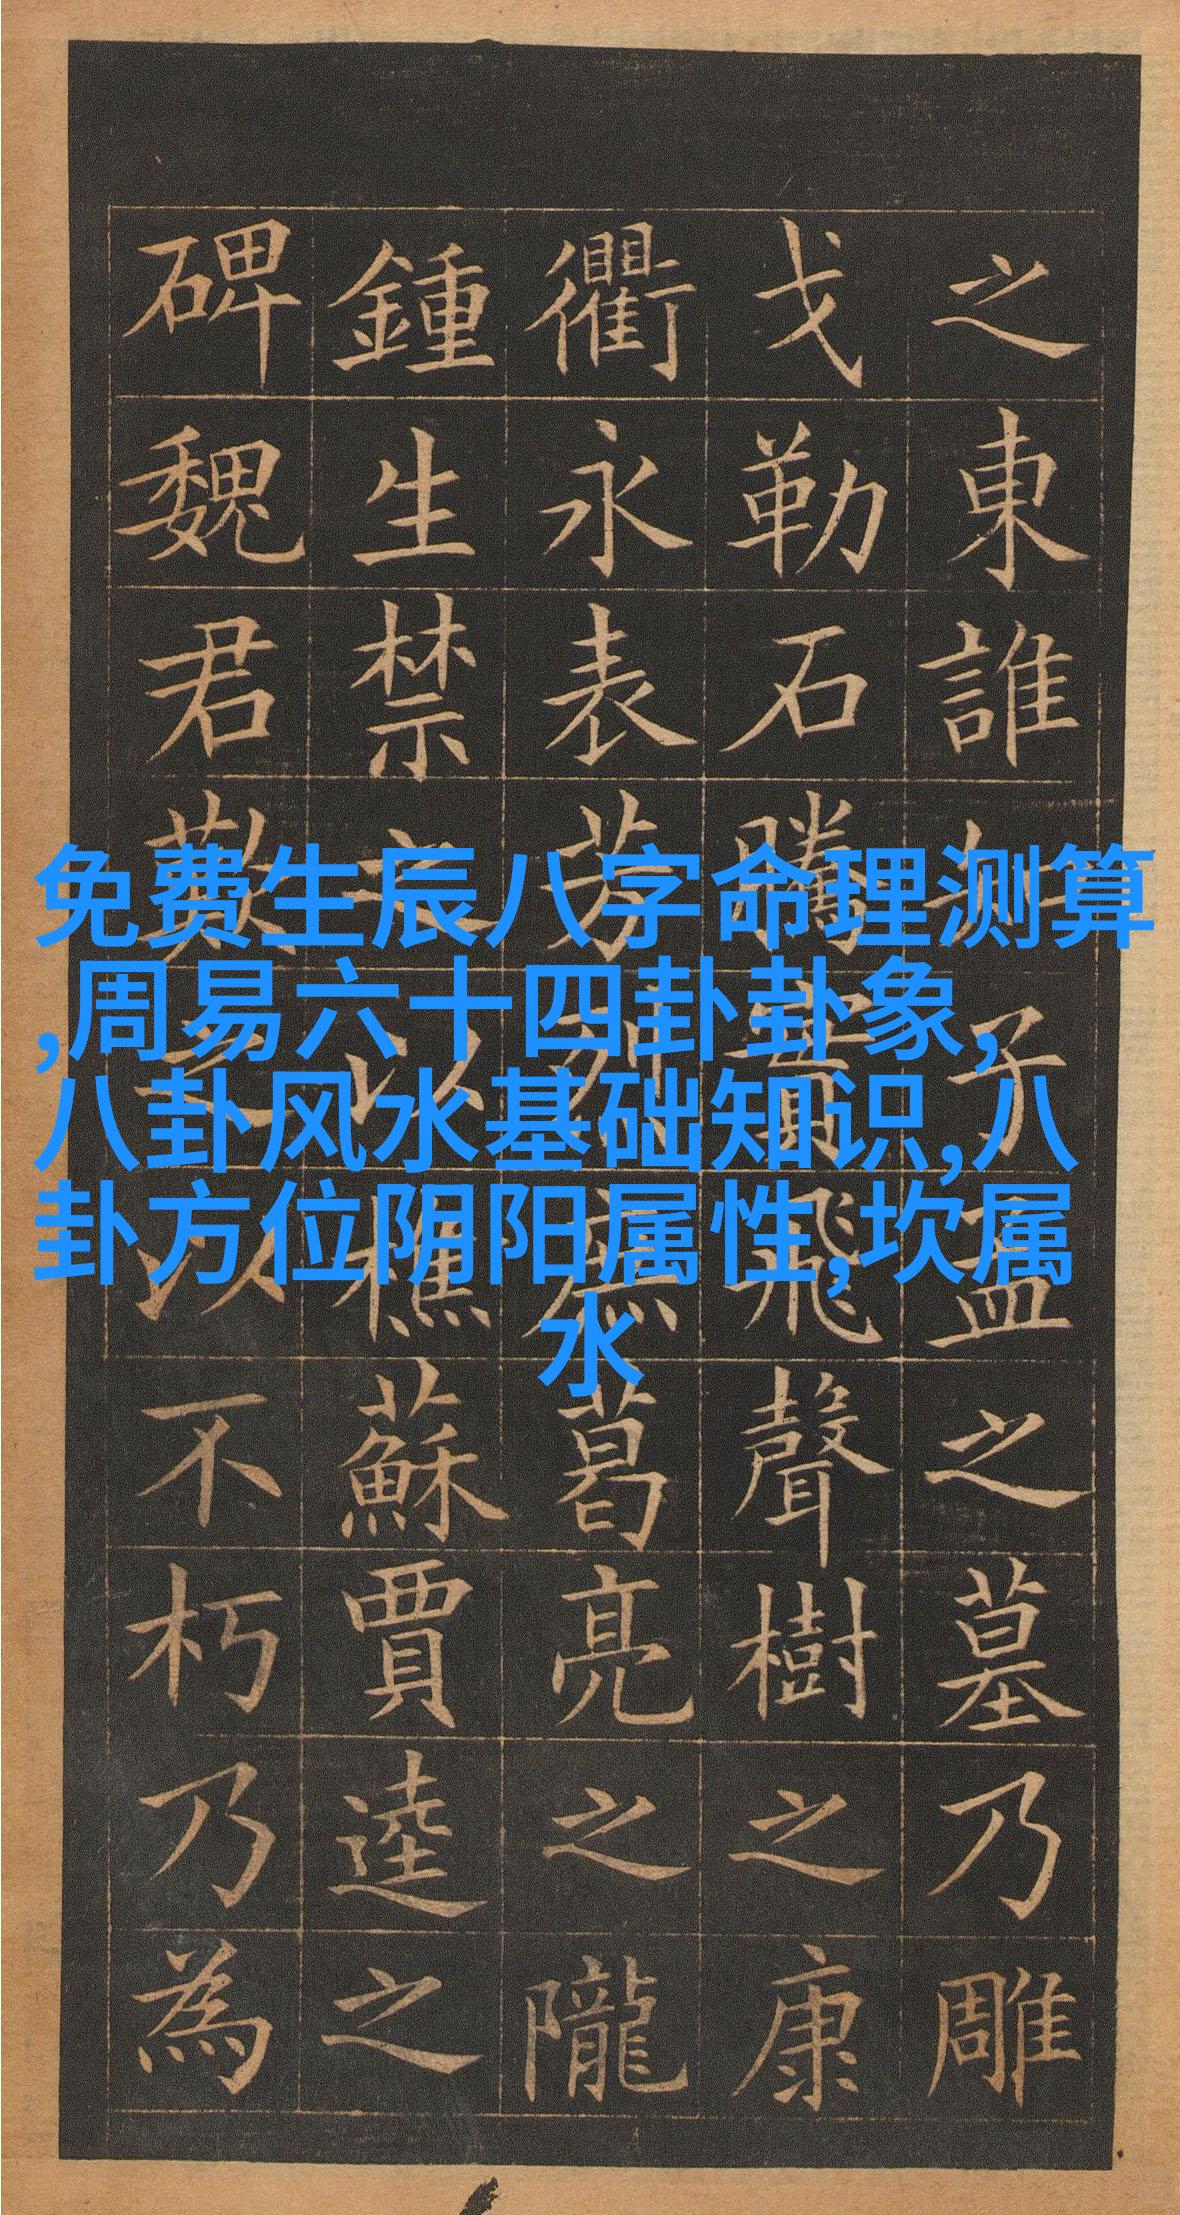 之東誰子孟之墓乃雕
戈勒石騰實飛聲樹之康
衢永表芳烈庶葛亮之隴
鍾生禁之以樵蘇賈逵之
碑魏君歎之以不朽乃為
免费生辰八字命理测算
,周易六十四卦卦象,
八卦风水基础知识,八
卦方位阴阳属性,坎属
水